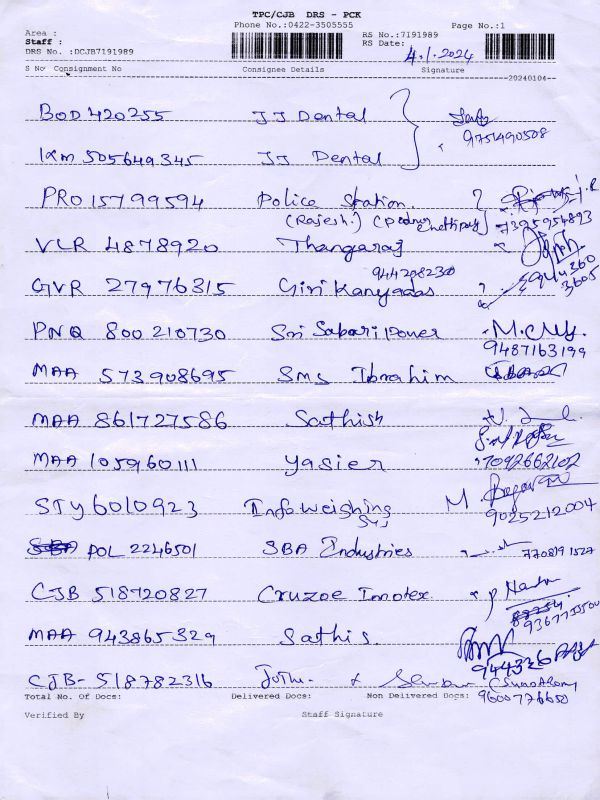 TPC/CJB DRS - PCK
Area : Phone No.:0422-3505555 Page No.:1
Staff : RS No.:7191989
DRS No. :DCJB7191989 RS Date: 4.1.2024
S No Consignment No Consignee Details Signature
20240104
BOD 420255 JJ Dental
9751490508
IXM 505649345 JJ Dental
PRO 15799594 Police Station.
(Rajesh.) 7395954893
VLR 4878920 Thangaraj
944360
3605
9442982330
GVR 27976315 Giri Kanyadas
PNQ 800210730 Sri Sabari Power
9487163199
MAA 573908695 SMS Ibrahim
MAA 861727586 Sathish
MAA 105960111 Yasier 7092662102
STY 6010923 Infoweighing
Sys 9025212004
POL 2246501 SBA Industries 770819 1527
CJB 518720827 Cruzoe Imotex
MAA 943865329 Sathis
CJB- 518782316 Jothi.
Total No. Of Docs: Delivered Docs: Non Delivered Docs: 9600776650
Verified By Staff Signature